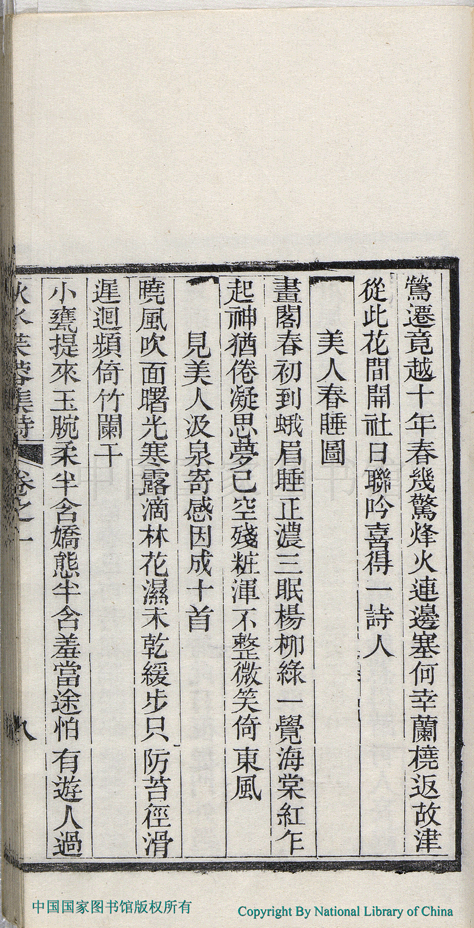 鶯遷竟越十年春幾驚烽火連邊塞何幸蘭橈返故津
從此花間開社日聯吟喜得一詩人
美人春睡圖
畫閣春初到蛾眉睡正濃三眠楊柳綠一覺海棠紅乍
起神猶倦凝思夢已空殘粧渾不整微笑倚東風
見美人汲泉寄感因成十首
曉風吹面曙光寒露滴林花濕未乾緩步只防苔徑滑
遲迴頻倚竹闌干
小甕提來玉腕柔半含嬌態半含羞當途怕有遊人過
秋水芙蓉集詩 卷之一 八
中国国家图书馆版权所有
Copyright By National Library of China